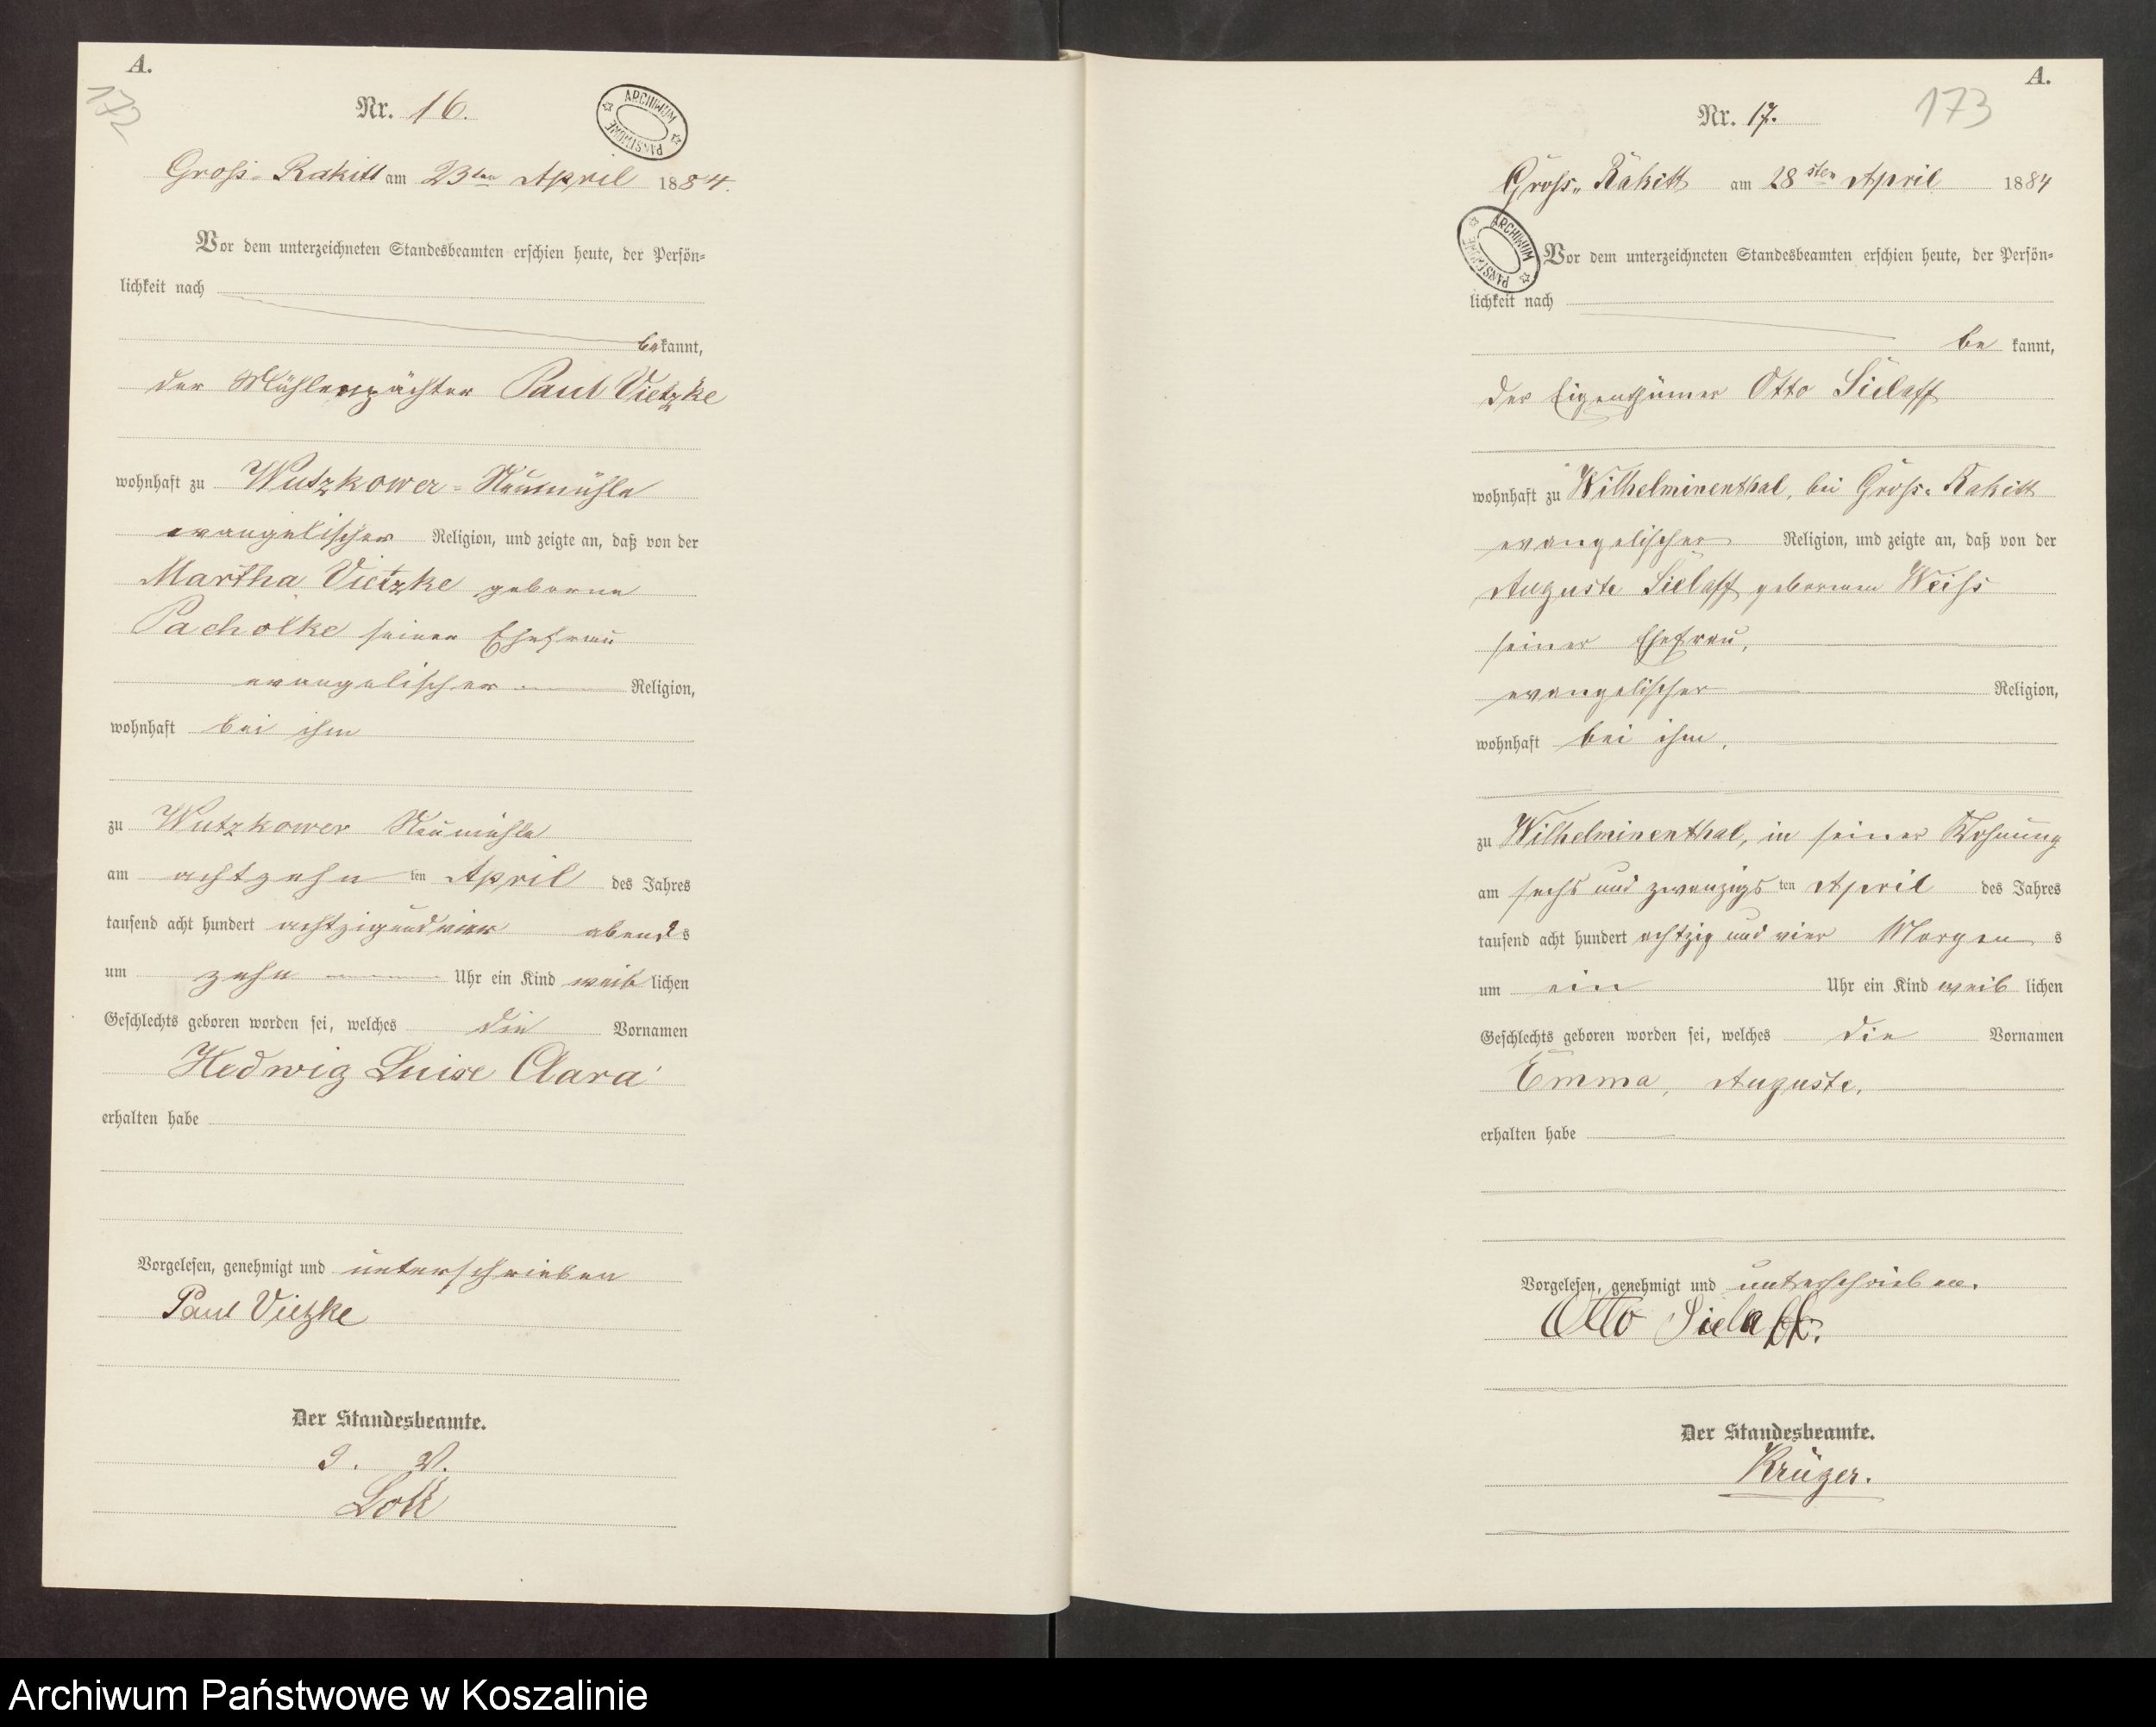 A.
172
Nr. 16.
ARCHIWUM PAŃSTWOWE
Groß-Rakitt am 23ten April 1884.
Vor dem unterzeichneten Standesbeamten erschien heute, der Persön-
lichkeit nach
bekannt,
der Mühlenpächter Paul Vietzke
wohnhaft zu Wutzkower-Neumühle
evangelischer Religion, und zeigte an, daß von der
Martha Vietzke geborne
Pacholke seiner Ehefrau
evangelischer Religion,
wohnhaft bei ihm
zu Wutzkower Neumühle
am achtzehn ten April des Jahres
tausend acht hundert achtzig und vier abends
um zehn Uhr ein Kind weiblichen
Geschlechts geboren worden sei, welches die Vornamen
Hedwig Luise Clara
erhalten habe
Vorgelesen, genehmigt und unterschrieben
Paul Vietzke
Der Standesbeamte.
I. V.
A.
173
Nr. 17.
Groß-Rakitt am 28sten April 1884
ARCHIWUM PAŃSTWOWE
Vor dem unterzeichneten Standesbeamten erschien heute, der Persön-
lichkeit nach
be kannt,
der Eigenthümer Otto Sielaff
wohnhaft zu Wilhelminenthal, bei Groß-Rakitt
evangelischer Religion, und zeigte an, daß von der
Auguste Sielaff geborenen Weiß
seiner Ehefrau,
evangelischer Religion,
wohnhaft bei ihm,
zu Wilhelminenthal, in seiner Wohnung
am sechs und zwanzigs ten April des Jahres
tausend acht hundert achtzig und vier Morgen s
um ein Uhr ein Kind weib lichen
Geschlechts geboren worden sei, welches die Vornamen
Emma, Auguste,
erhalten habe
Vorgelesen, genehmigt und unterschrieben.
Otto Sielaff.
Der Standesbeamte.
Krüger.
Archiwum Państwowe w Koszalinie